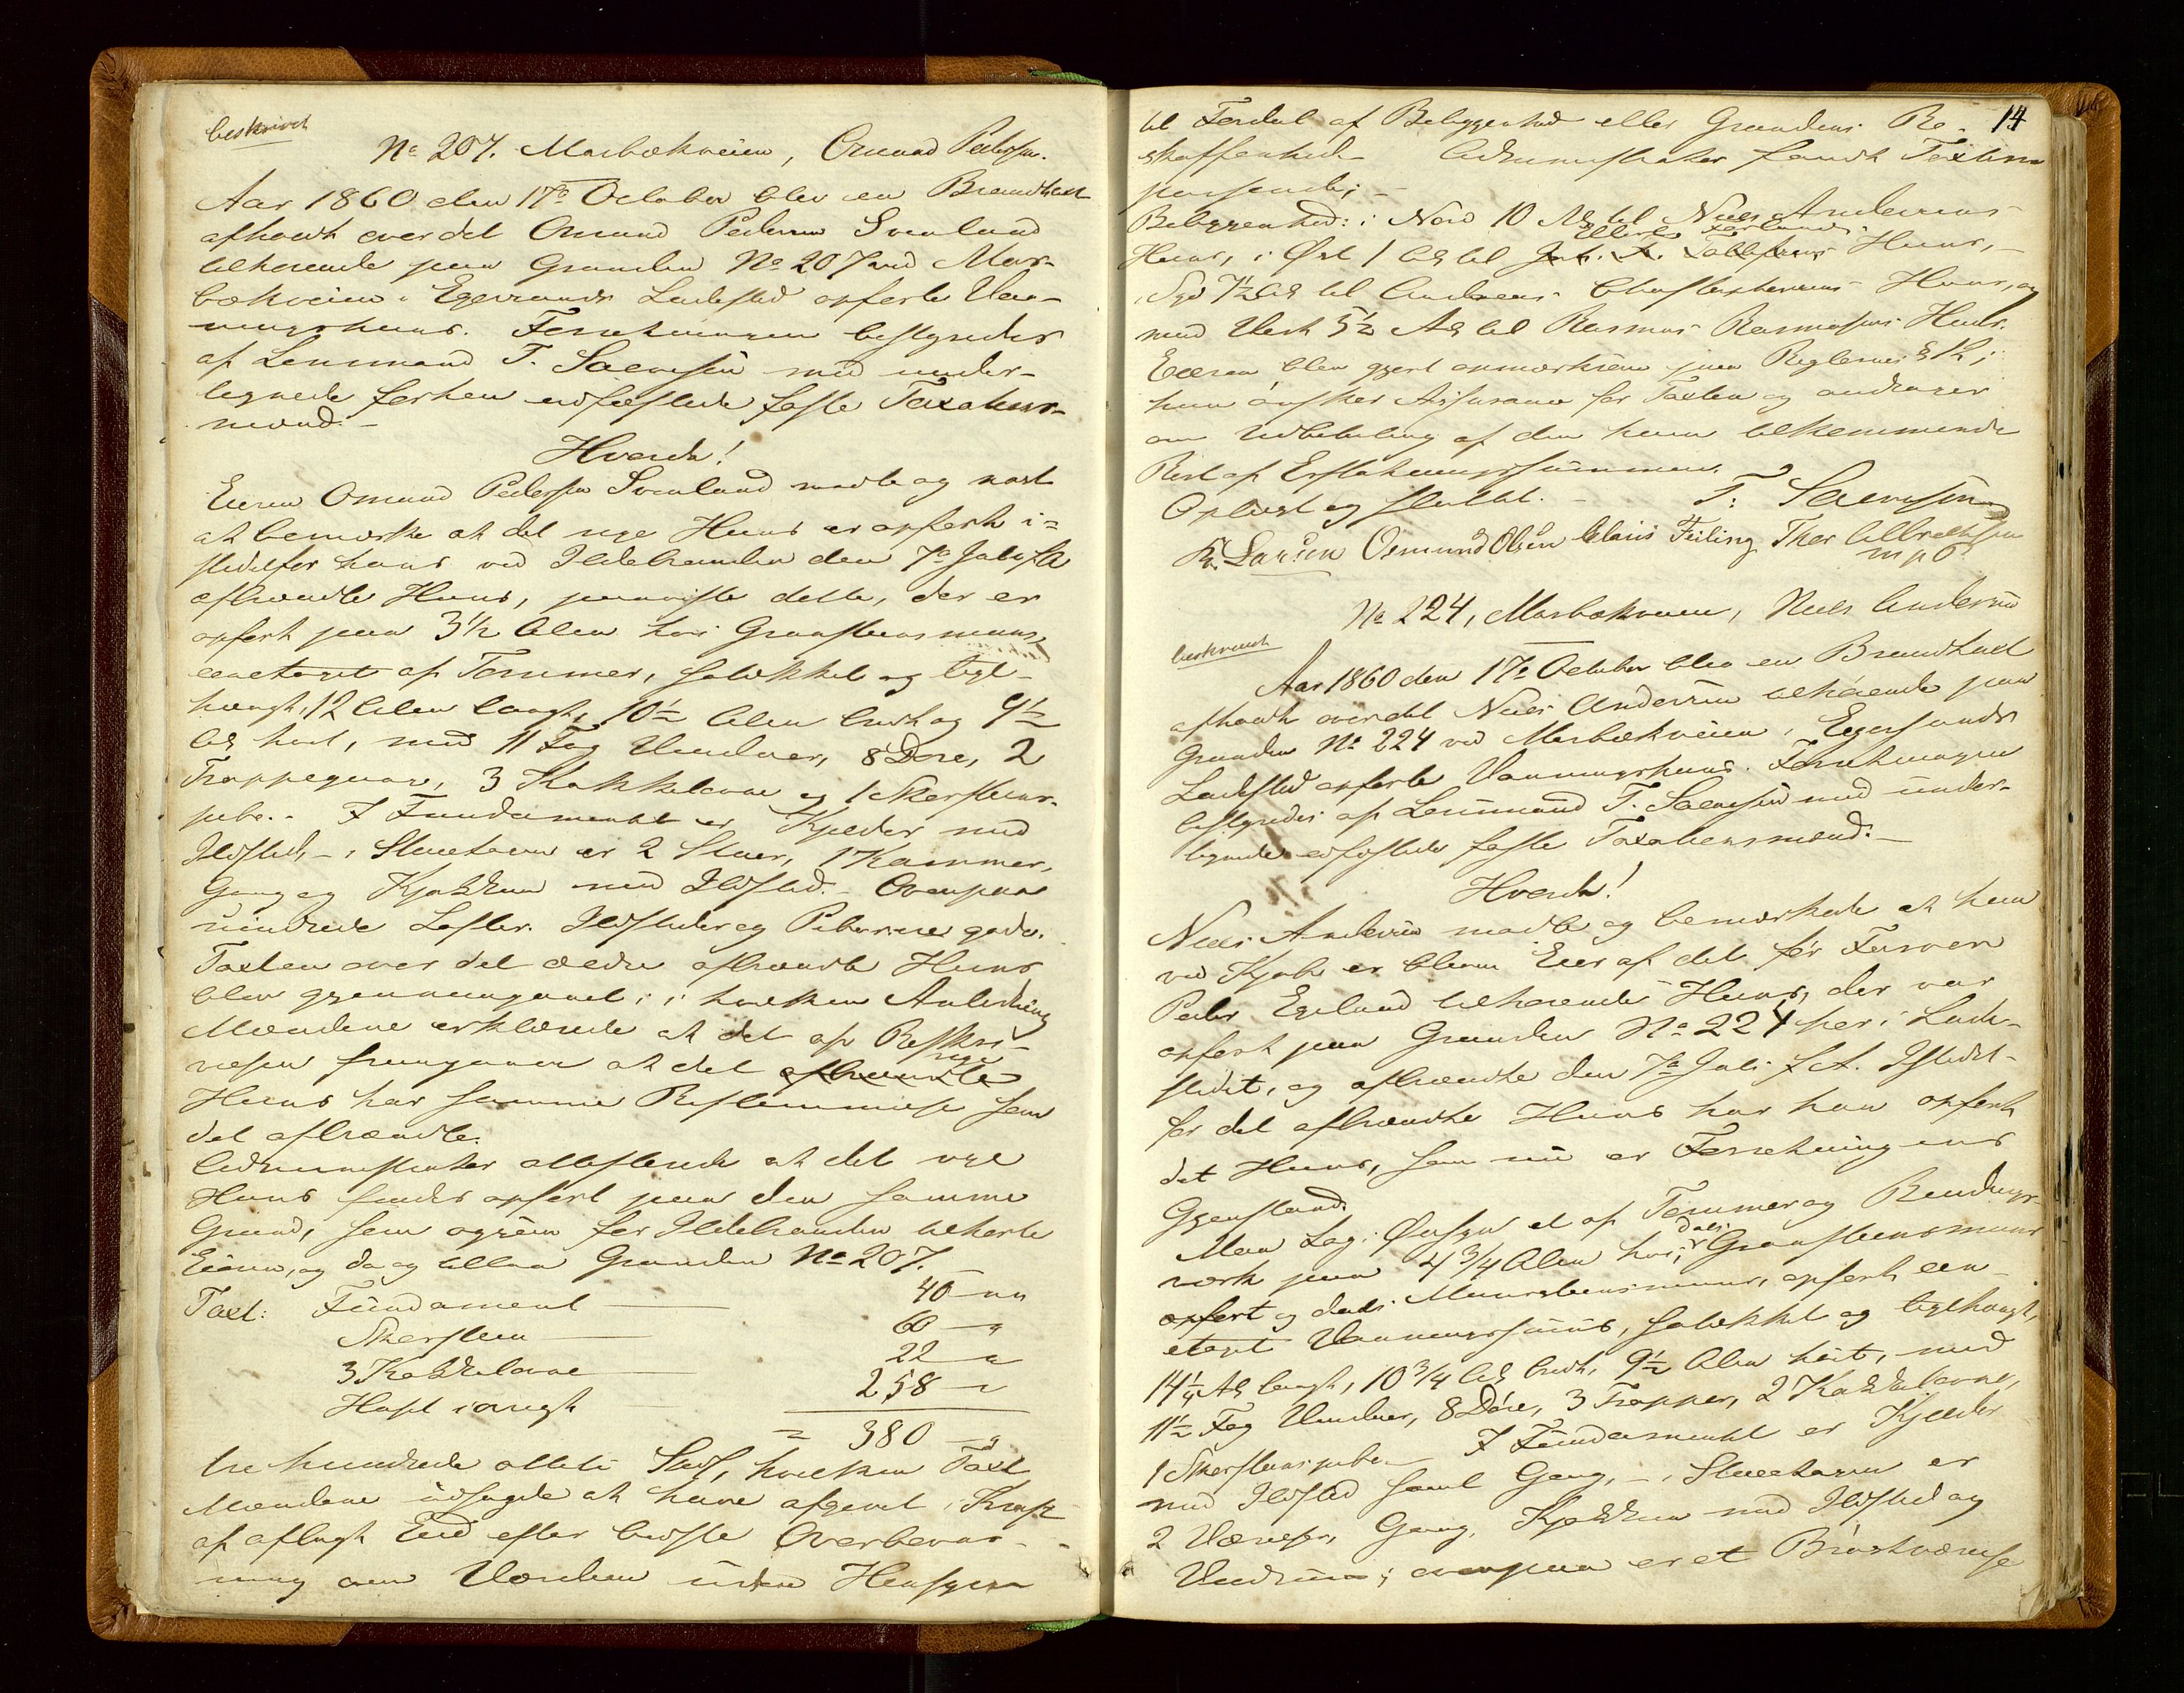 beskrivet
No 207. Mosbækveien, Omund Pedersen.
Aar 1860 den 17de October blev en Brandtaxt
afholdt over det Omund Pedersen Svenland
tilhørende paa Grunden No 207 ved Mos-
bækveien i Egersunds Ladested opførte Vaa-
ningshuus. Forretningen bestyredes
af Lensmand T. Svensen med under-
tegnede forhen edfæstede faste Taxations-
mænd.-
Hvorda!
Eieren Omund Pedersen Svenland mødte og
at bemærke at det nye Huus er opført i-
stedetfor hans ved Ildebranden den 7de Juli f. A
afbrændte Huus, paaviste dette, der er
opført paa 3 1/2 Alen høi Graasteensmuur,
eenetaget af Tømmer, Solækket og tegl-
hængt, 12 Alen langt, 10 1/2 Alen bredt og 9 1/2
Al. høit, med 11 Fag Vinduer, 8 Døre, 2
Trappegange, 3 Kakkelovne og 1 Skorsteens-
pibe.- I Fundamentet er Kjelder med
Ildsted,- i Stueetagen er 2 Stuer, 1 Kammer,
Gang og Kjøkken med Ildsted.- Ovenpaa
uindrede Lofter. Ildsteder og Piberne gode.
Taxten over det ældre afbrændte Huus
blev gjennemgaaet; i hvilken Anledning
Mændene erklærede at det af Beskri-
nye
velsen fremgaaer at det afbrændte
Huus har samme Bestemmelse som
det afbrændte.
Administrator attesterede at det nye
Huus findes opført paa den samme
Grund, som ogsaa før Ildebranden tilhørte
Eieren, og da og tillaa Grunden No 207.
Taxt: Fundament 40 -
Skorsteen 60 - "
3 Kakkelovne 22 - "
Huset iøvrigt 258 - "
= 380 - "
tre hundrede otteti Spd, hvilken Taxt
Mændene udsagde at have afgivet i Kraft
af aflagt Eed efter bedste Overbeviis-
ning om Værdien uden Hensyn
14
til Fordeel af Beliggenhed eller Grundens Be-
skaffenhed. Administrator fandt Taxten
passende;-
Beliggenhed: i Nord 10 Al til Niels Andersens
Huus, i Øst 1 Al til Huus,-
i Syd 7 1/2 Al til Andreas Huus, og
mod Vest 5 1/2 Al til Rasmus Rasmussens Huus.
Eieren blev gjort opmærksom paa Reglernes § 12;
han ønsker Assurance for Taxten og andrager
om Udbetaling af den ham tilkommende
Rest af Erstatningssummen.
Oplæst og sluttet.- T. Svensen
R. Larsen Osmund Olsen Claus Feiling Thor Albrethsen
m p P
No 224, Mosbækveien, Niels Andersen
beskrevet
Aar 1860 den 17de October blev en Brandtaxt
afholdt over det Niels Andersen tilhørende paa
Grunden No 224 ved Mosbækveien i Egersunds
Ladested opførte Vaaningshuus. Forretningen
bestyredes af Lensmand T. Svensen med under-
tegnede edfæstede faste Taxationsmænd.-
Hvorda!
Niels Andersen mødte og bemærkede at han
ved Kjøb er bleven Eier af det før Farver
Peder Egeland tilhørende Huus, der var
opført paa Grunden No 224 her i Lade-
stedet, og afbrændte den 7de Juli f. A. Istedet-
for det afbrændte Huus har han opført
det Huus, som nu er Forretningens
Gjenstand.
Man tog i Øiesyn et af Tømmer og Bindings-
deels
værk paa 4 3/4 Alen høi, Graasteensmuur
opført og deels Muursteensmuur, opført een-
etaget Vaaningshuus, Solækket og teglhængt,
14 1/4 Al langt, 10 3/4 Al bredt, 9 1/2 Alen høit, med
11 1/2 Fag Vinduer, 8 Døre, 3 Trapper, 2 Kakkelovne,
1 Skorsteenspibe. I Fundamentet er Kjelder
med Ildsted samt Gang,- i Stueetagen er
2 Værelser, Gang, Kjøkken med Ildsted og
; ovenpaa er et Brystværelse